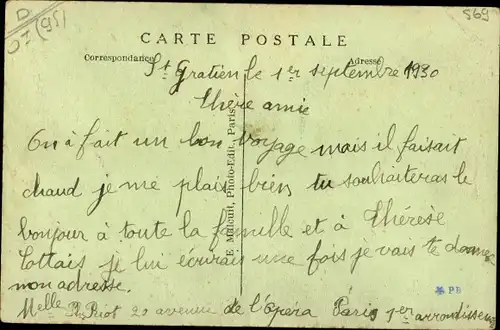 D
07 (95)
569
CARTE POSTALE
Correspondance
Adresse
St Gratien le 1er septembre 1930
Chère amie
On à fait un bon voyage mais il faisait
chaud je me plais bien tu souhaiteras le
bonjour à toute la famille et à Thérèse
Lottais je lui écrirais une fois je vais te donner
mon adresse.
Melle 20 avenue de l'Opéra Paris 1er arrondissem
E. Mulleuil, Photo-Edit., Paris
PB